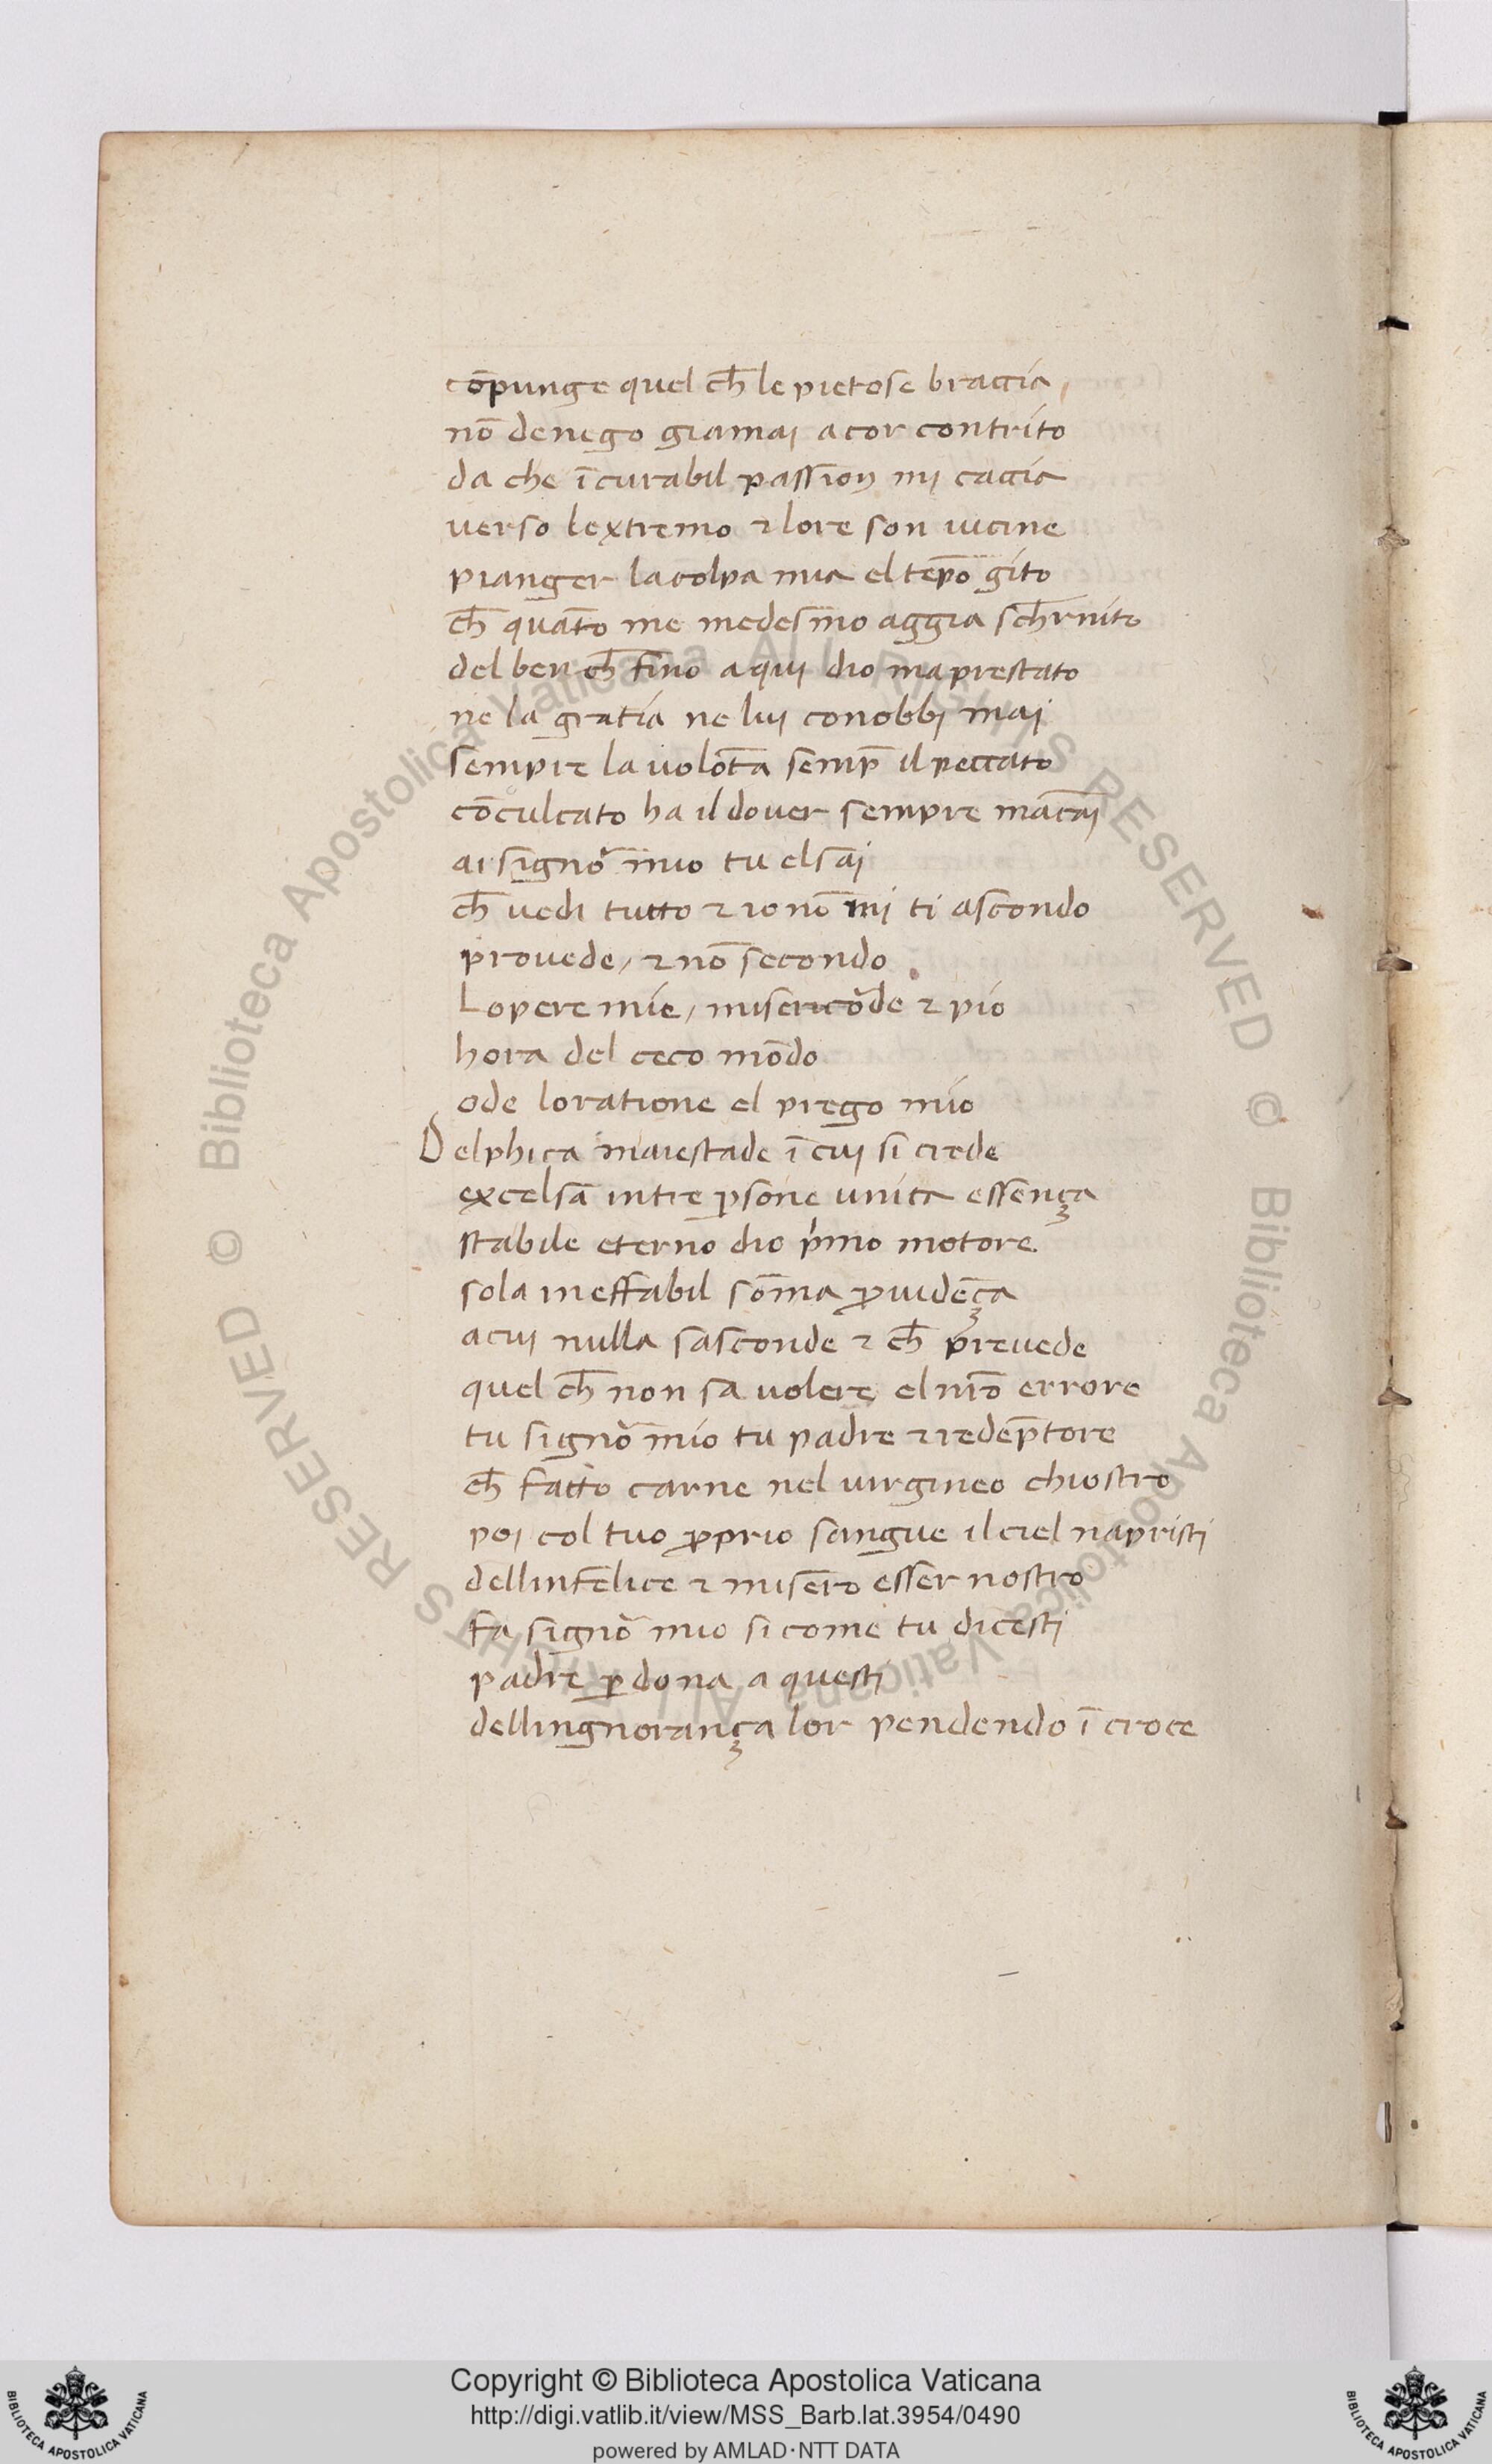 cōpunge quel ch̄ le pietose braccia,
nō denego giamai a cor contrito
da che ī curabil passion mi caccia
verso lextremo ⁊ lore son vicine
pianger la colpa mia el tēpo gito
ch̄ quāto me medesimo aggia sch̄rnito
del ben ch̄ fino a qui dio ma prestato
ne la gratia ne lui conobbi mai
sempre la volōta semp̄ il peccato
cōculcato ha il dover sempre mācai
ai signō mio tu el sai
ch̄ vedi tutto ⁊ io nō mi ti ascondo
provede, ⁊ nō secondo
Lopere mie, misericōde ⁊ pio
hora del ceco mōdo
ode loratione el prego mio
Delphica maiestade ī cui si crede
excelsā in tre ꝑsone unita essença
stabile eterno dio pͥmo motore.
sola ineffabil sōma ꝓvidēça
a cui nulla sasconde ⁊ ch̄ prevede
quel ch̄ non sa volere el nr̄o errore
tu signō mio tu padre ⁊ redēptore
ch̄ fatto carne nel virgineo chiostro
poi col tuo ꝓprio sangue il ciel napristi
dellinfelice ⁊ misero esser nostro
fa signō mio si come tu dicesti
padre ꝑdona a questi
dellingnorança lor pendendo ī croce
Biblioteca Apostolica Vaticana ALL RIGHTS RESERVED ©
Biblioteca Apostolica Vaticana ALL RIGHTS RESERVED ©
Copyright © Biblioteca Apostolica Vaticana
http://digi.vatlib.it/view/MSS_Barb.lat.3954/0490
powered by AMLAD·NTT DATA
BIBLIOTECA APOSTOLICA VATICANA
BIBLIOTECA APOSTOLICA VATICANA